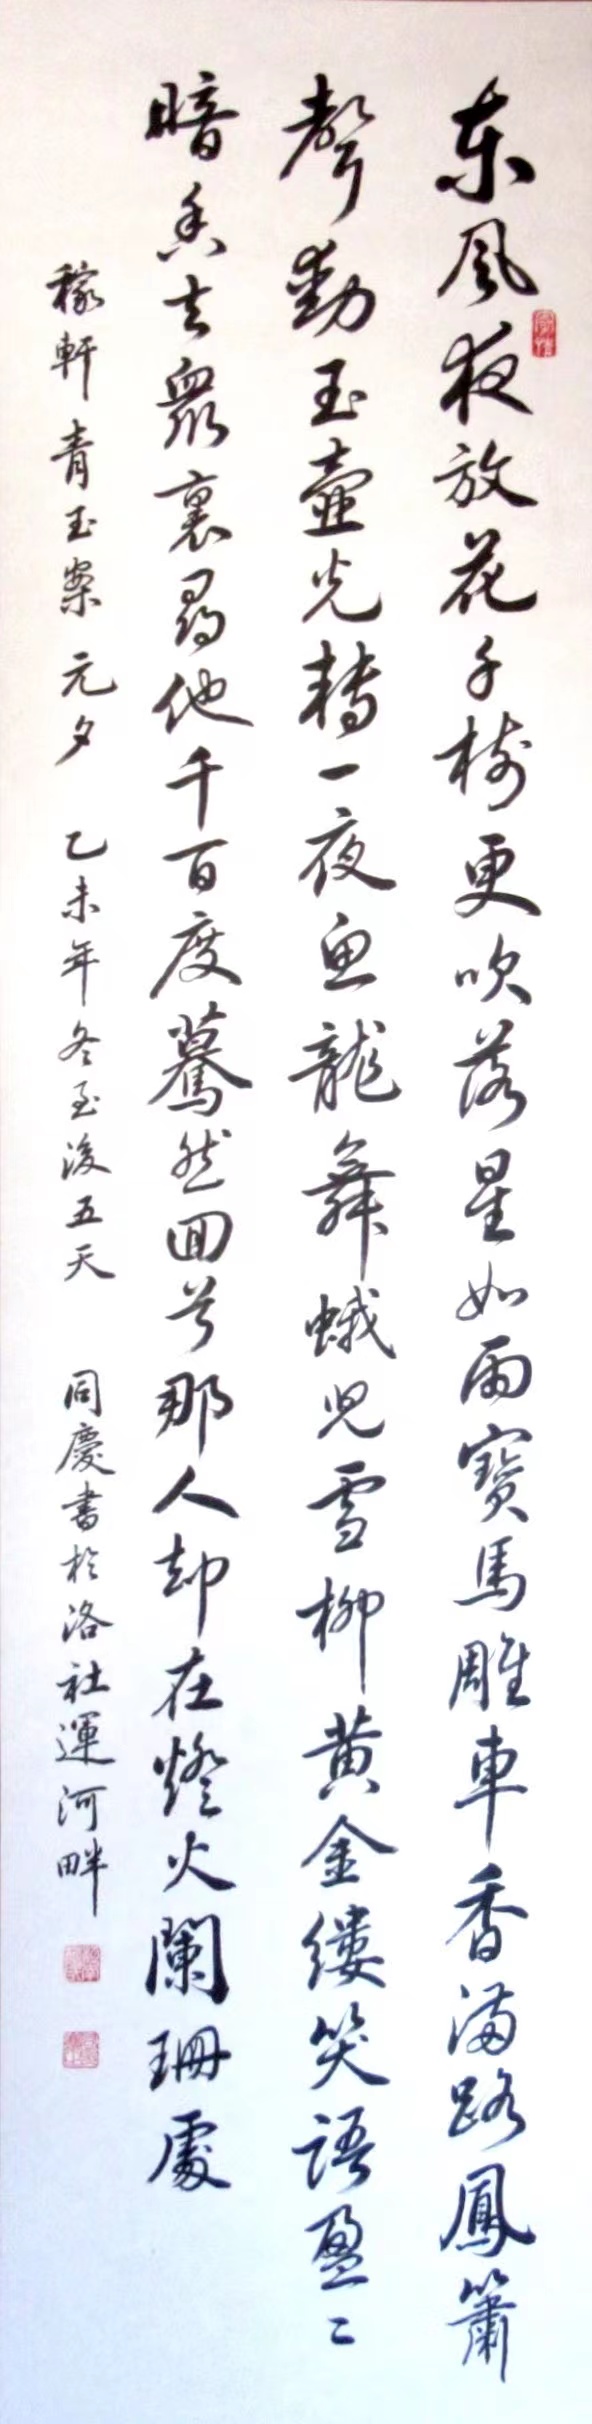 东风夜放花千树更吹落星如雨寶馬雕車香满路鳳簫
聲動玉壺光轉一夜魚龍舞蛾兒雪柳黄金缕笑语盈〻
暗香去眾裏尋他千百度驀然回首那人却在燈火闌珊處
稼軒青玉案元夕 乙未年冬至後五天 同慶書於洛社運河畔